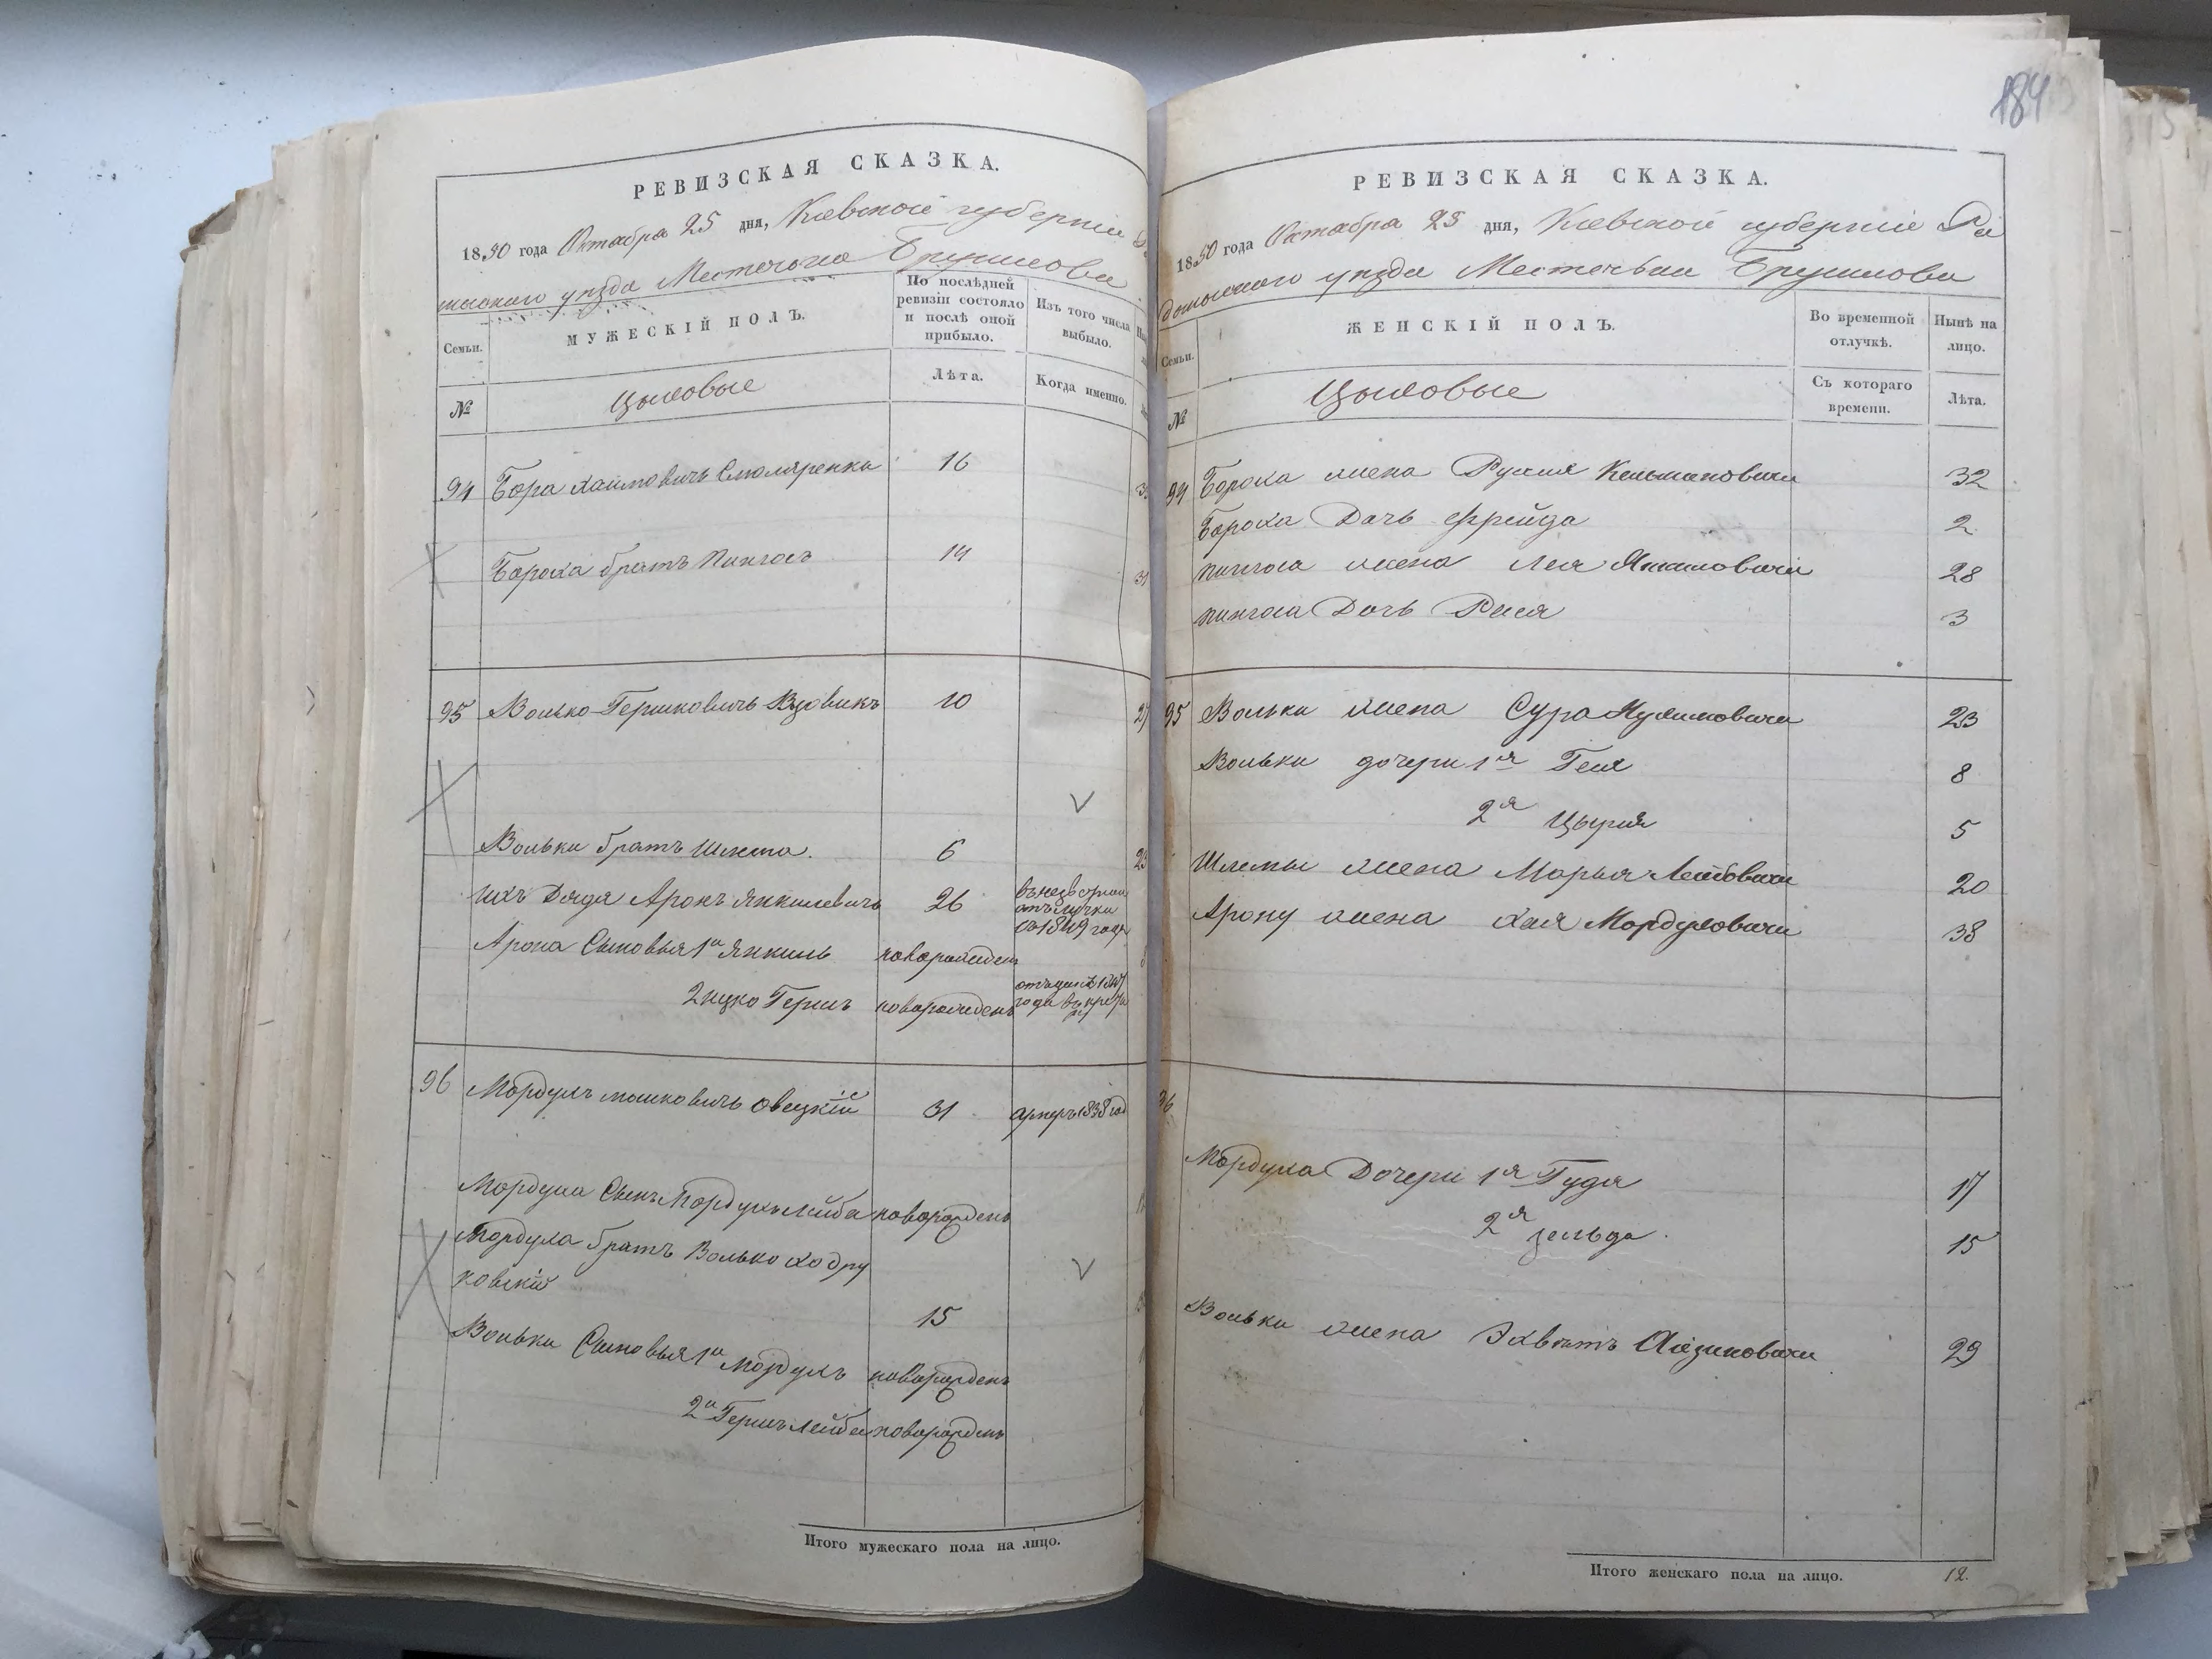 РЕВИЗСКАЯ СКАЗКА.
1850 года Октабра 25 дня, Кіевской губерніи
мысного уезда Местечька Брусилова
Семьи.
МУЖЕСКІЙ ПОЛЪ.
По послѣдней
ревизіи состояло
и послѣ оной
прибыло.
Изъ того числа
выбыло.
№
Цыховые
Лѣта.
Когда именно.
94 Бора Хаимовичъ Смоляренко 16
Бороха братъ Пинхосъ 14
95 Волько Гершковичъ Вдовикъ 10
V
Вольки братъ Шлема. 6
Ихъ Дядя Аронъ Янкилевичъ 26
отлучки
съ 1849 года
Арона Сыновья 1й Янкиль новорожденъ
2 Ицко Гершъ новорожденъ
96 Мордухъ Мошковичъ Овецкій 31 умеръ 1838 год
Мордуха Сынъ Мордухъ Лейба новорожденъ
Мордуха братъ Волько Ходру
ковскій
V
15
Вольки Сыновья 1й Мордухъ новорожденъ
2й Гершъ Лейба новорожденъ
Итого мужескаго пола на лицо.
184
РЕВИЗСКАЯ СКАЗКА.
1850 года Октабра 25 дня, Кіевской губерніи Ра
домысского уезда Местечька Брусилова
Семьи.
ЖЕНСКІЙ ПОЛЪ.
Во временной
отлучкѣ.
Нынѣ на
лицо.
№
Цыховые
Съ котораго
времени.
Лѣта.
94 Бороха жена Рухля Кельмановичи 32
Бороха Дочь Фрейда 2
Пинхоса жена Лея 28
Пинхоса Дочь Рися 3
95 Вольки жена Сура 23
Вольки дочери 1я Геня 8
2я Цырля 5
Шлемы жена Марья Лейбовичи 20
Арону жена Хая Мордуховичи 38
96
Мордуха Дочери 1я Гудя 17
2я Зельда. 15
Вольки жена 29
Итого женскаго пола на лицо. 12.